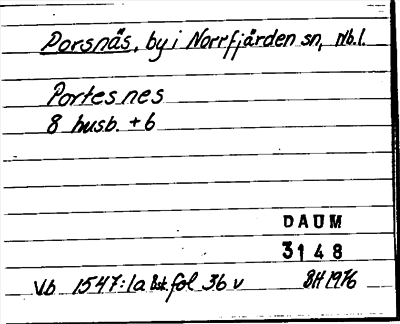 Porsnäs, by i Norrfjärden sn, Nb.l.
Portesnes
8 husb. + 6
DAUM
3148
Vb 1547:1a fol 36 v BH 1976